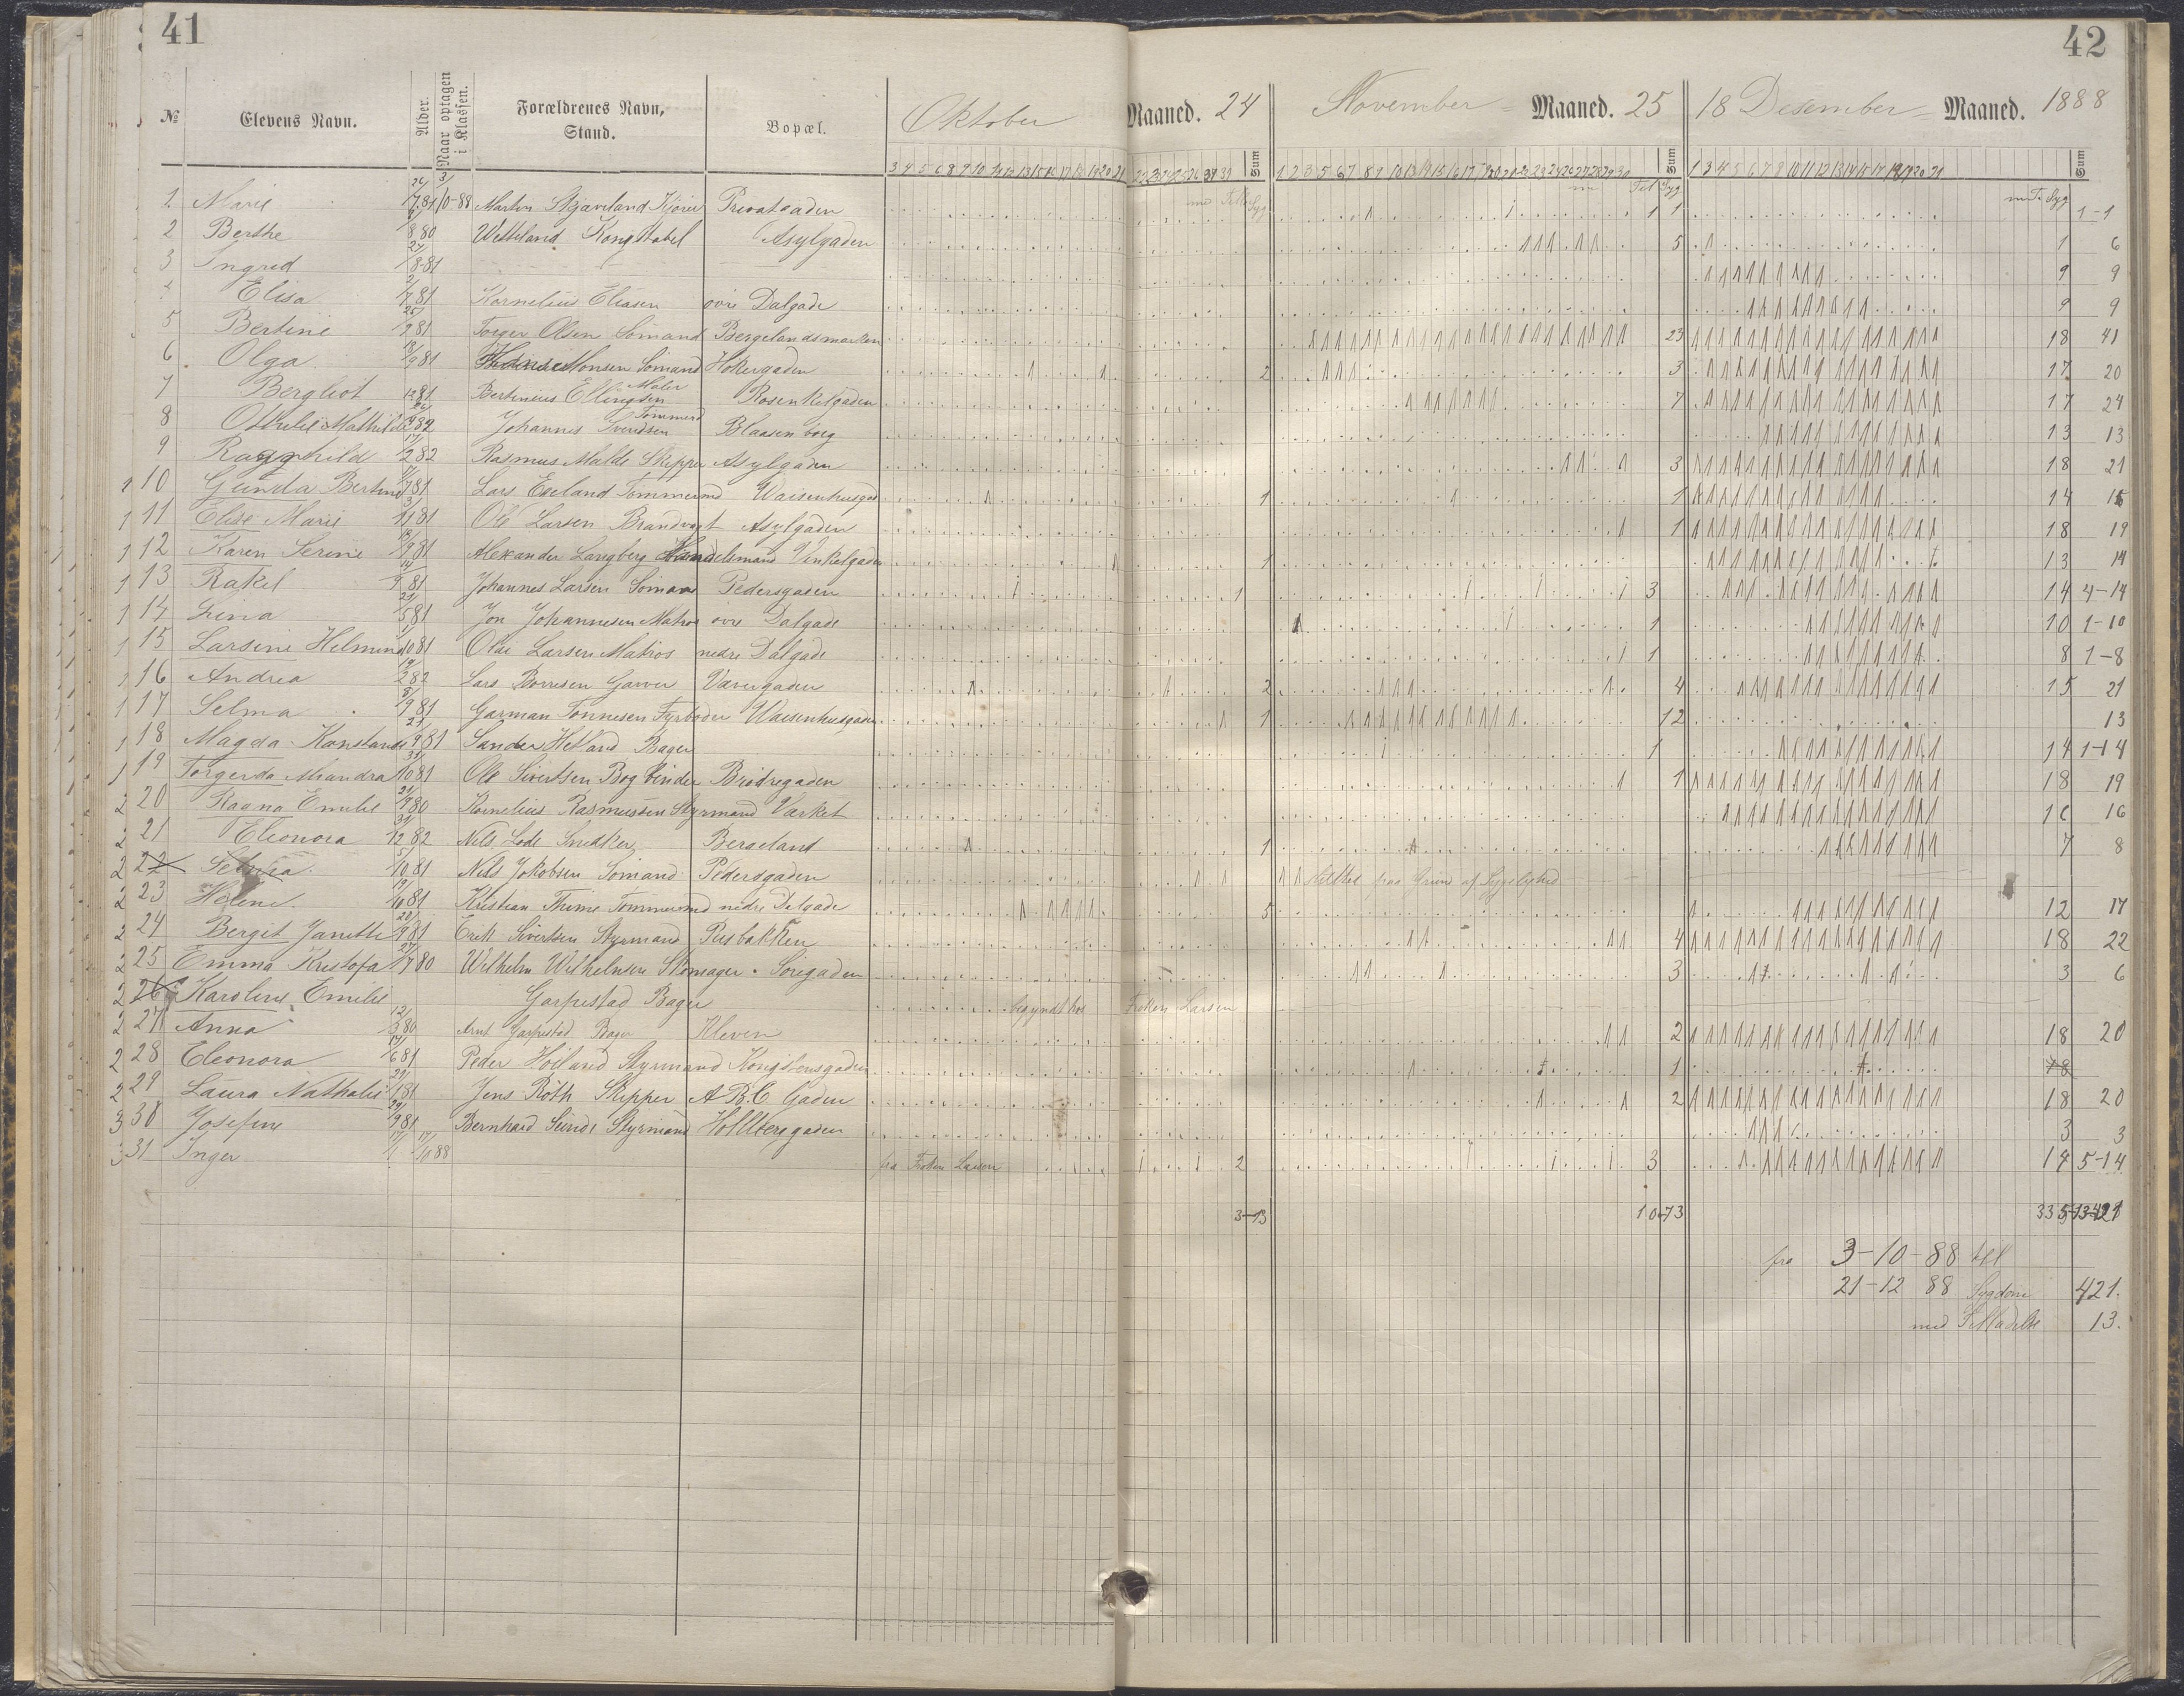 41
42
№ Elevens Navn. Alder. Naar optagen i Klassen. Forældrenes Navn, Stand. Bopæl. Oktober Maaned. 24 Sum November Maaned. 25 Sum 18 Desember Maaned. 1888 Sum
1 Marie 26/7 81 3/10-88 Martin Stgaveland Kjører Privatgaden 1 1 1-1
2 Berthe 8 80 Welleland Kongstabel Asylgaden 5 1 6
3 Ingred 27/8-81 9 9
4 Elisa 2/7 81 Kornelius Eliasen øvre Dalgade 9 9
5 Bertine 25/9 81 Torger Olsen Sømand Bergelandsmarken 23 18 41
6 Olga 13/9 81 Monsen Sømand Hokergaden 2 3 17 20
7 Bergliot 12 81 Bertinius Ellingsen Maler Rosenkilgaden 7 17 24
8 Othelie Mathilde 82 Johannes Svendsen Tømmerd Blaasenborg 13 13
9 Ragnhild 17/2 82 Rasmus Malde Skipper Asylgaden 3 18 21
10 Gunda Bertine 7 81 Lars Eseland Tømmermd Waisenhusgad 1 1 14 15
11 Elise Marie 3/11 81 Ole Larsen Brandvagt Asylgaden 1 18 19
12 Karen Serine 18/9 81 Alexander Langberg Handelsmand Vinkelgaden 1 13 14
13 Rakel 14/9 81 Johannes Larsen Sømand Pedersgaden 1 3 14 4-14
14 Lina 21/5 81 Jon Johannesen Matros øvre Dalgade 1 10 1-10
15 Larsine Helmine 10 81 Olai Larsen Matros nedre Dalgade 1 8 1-8
16 Andrea 19/2 82 Lars Børresen Garver Vævergaden 2 4 15 21
17 Selma 8/9 81 Garman Tønnesen Fyrbøder Waisenhusgaden 1 12 13
18 Magda Konstanse 23/9 81 Sander Hetland Bager 1 14 1-14
19 Torgerda Miandra 31/10 81 Ole Sivertsen Bogbinder Brødregaden 1 18 19
20 Ragna Emilie 21/9 80 Kornelius Rasmussen Styrmand Varket 16 16
21 Eleonora 31/12 82 Nils Lode Snedker Bergeland 1 7 8
22 Selma 5/10 81 Nils Jokobsen Sømand Pedersgaden paa Grund af Sygelighed
23 Helene 19/10 81 Kristian Thime Tømmermd nedre Dalgade 5 12 17
24 Bergit Janette 20/9 81 Erik Sivertsen Styrmand Pusbakken 4 18 22
25 Emma Kristofa 27/7 80 Wilhelm Wilhelmsen Skomager Søregaden 3 3 6
26 Karoline Emilie Garpestad Bager begyndt hos Frøken Larsen
27 Anna 12/3 80 Arnt Garpestad Bager Kleven 2 18 20
28 Eleonora 14/6 81 Peder Hoiland Styrmand Kongstensgaden 1
29 Laura Nathalie 29/1 81 Jens Roth Skipper A B C Gaden 2 18 20
30 Josefine 29/9 81 Bernhard Sunde Styrmand Holbergsgaden 3 3
31 Inger 17/10 88 fra Frøken Larsen 2 3 14 5-14
3-13 10-73 335-13-421
fra 3-10-88 til
21-12 88 Sygdom 421.
med Tilladelse 13.